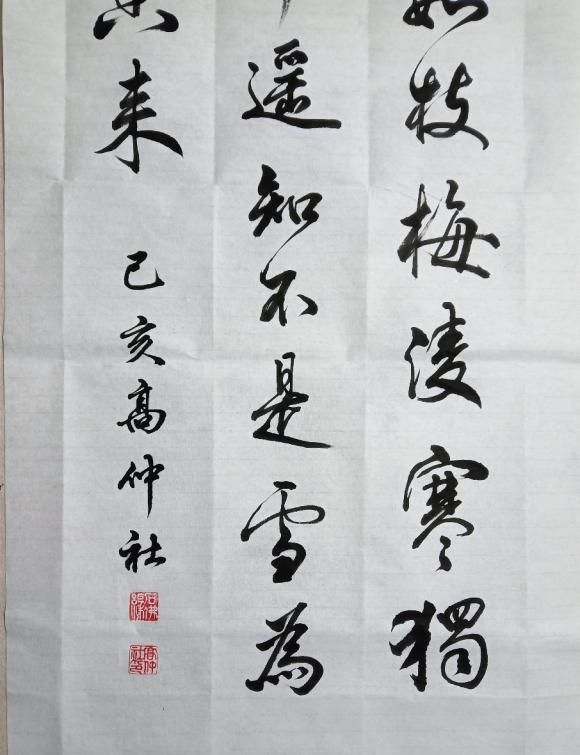 枝梅淩寒獨
遥知不是雪為
来
己亥高仲社
高仲社印